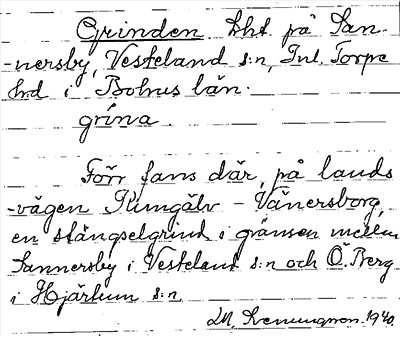 Grinden Lht på San-
-nersby, Vesteland s:n, Inl. Torpe
hrd i Bohus län.
grina.
Förr fans där, på lands
-vägen Kungälv - Vänersborg,
en stängselgrind i gränsen mellan
Sannersby i Vesteland s:n och Ö. Berg
i Hjärtum s:n.
1940.